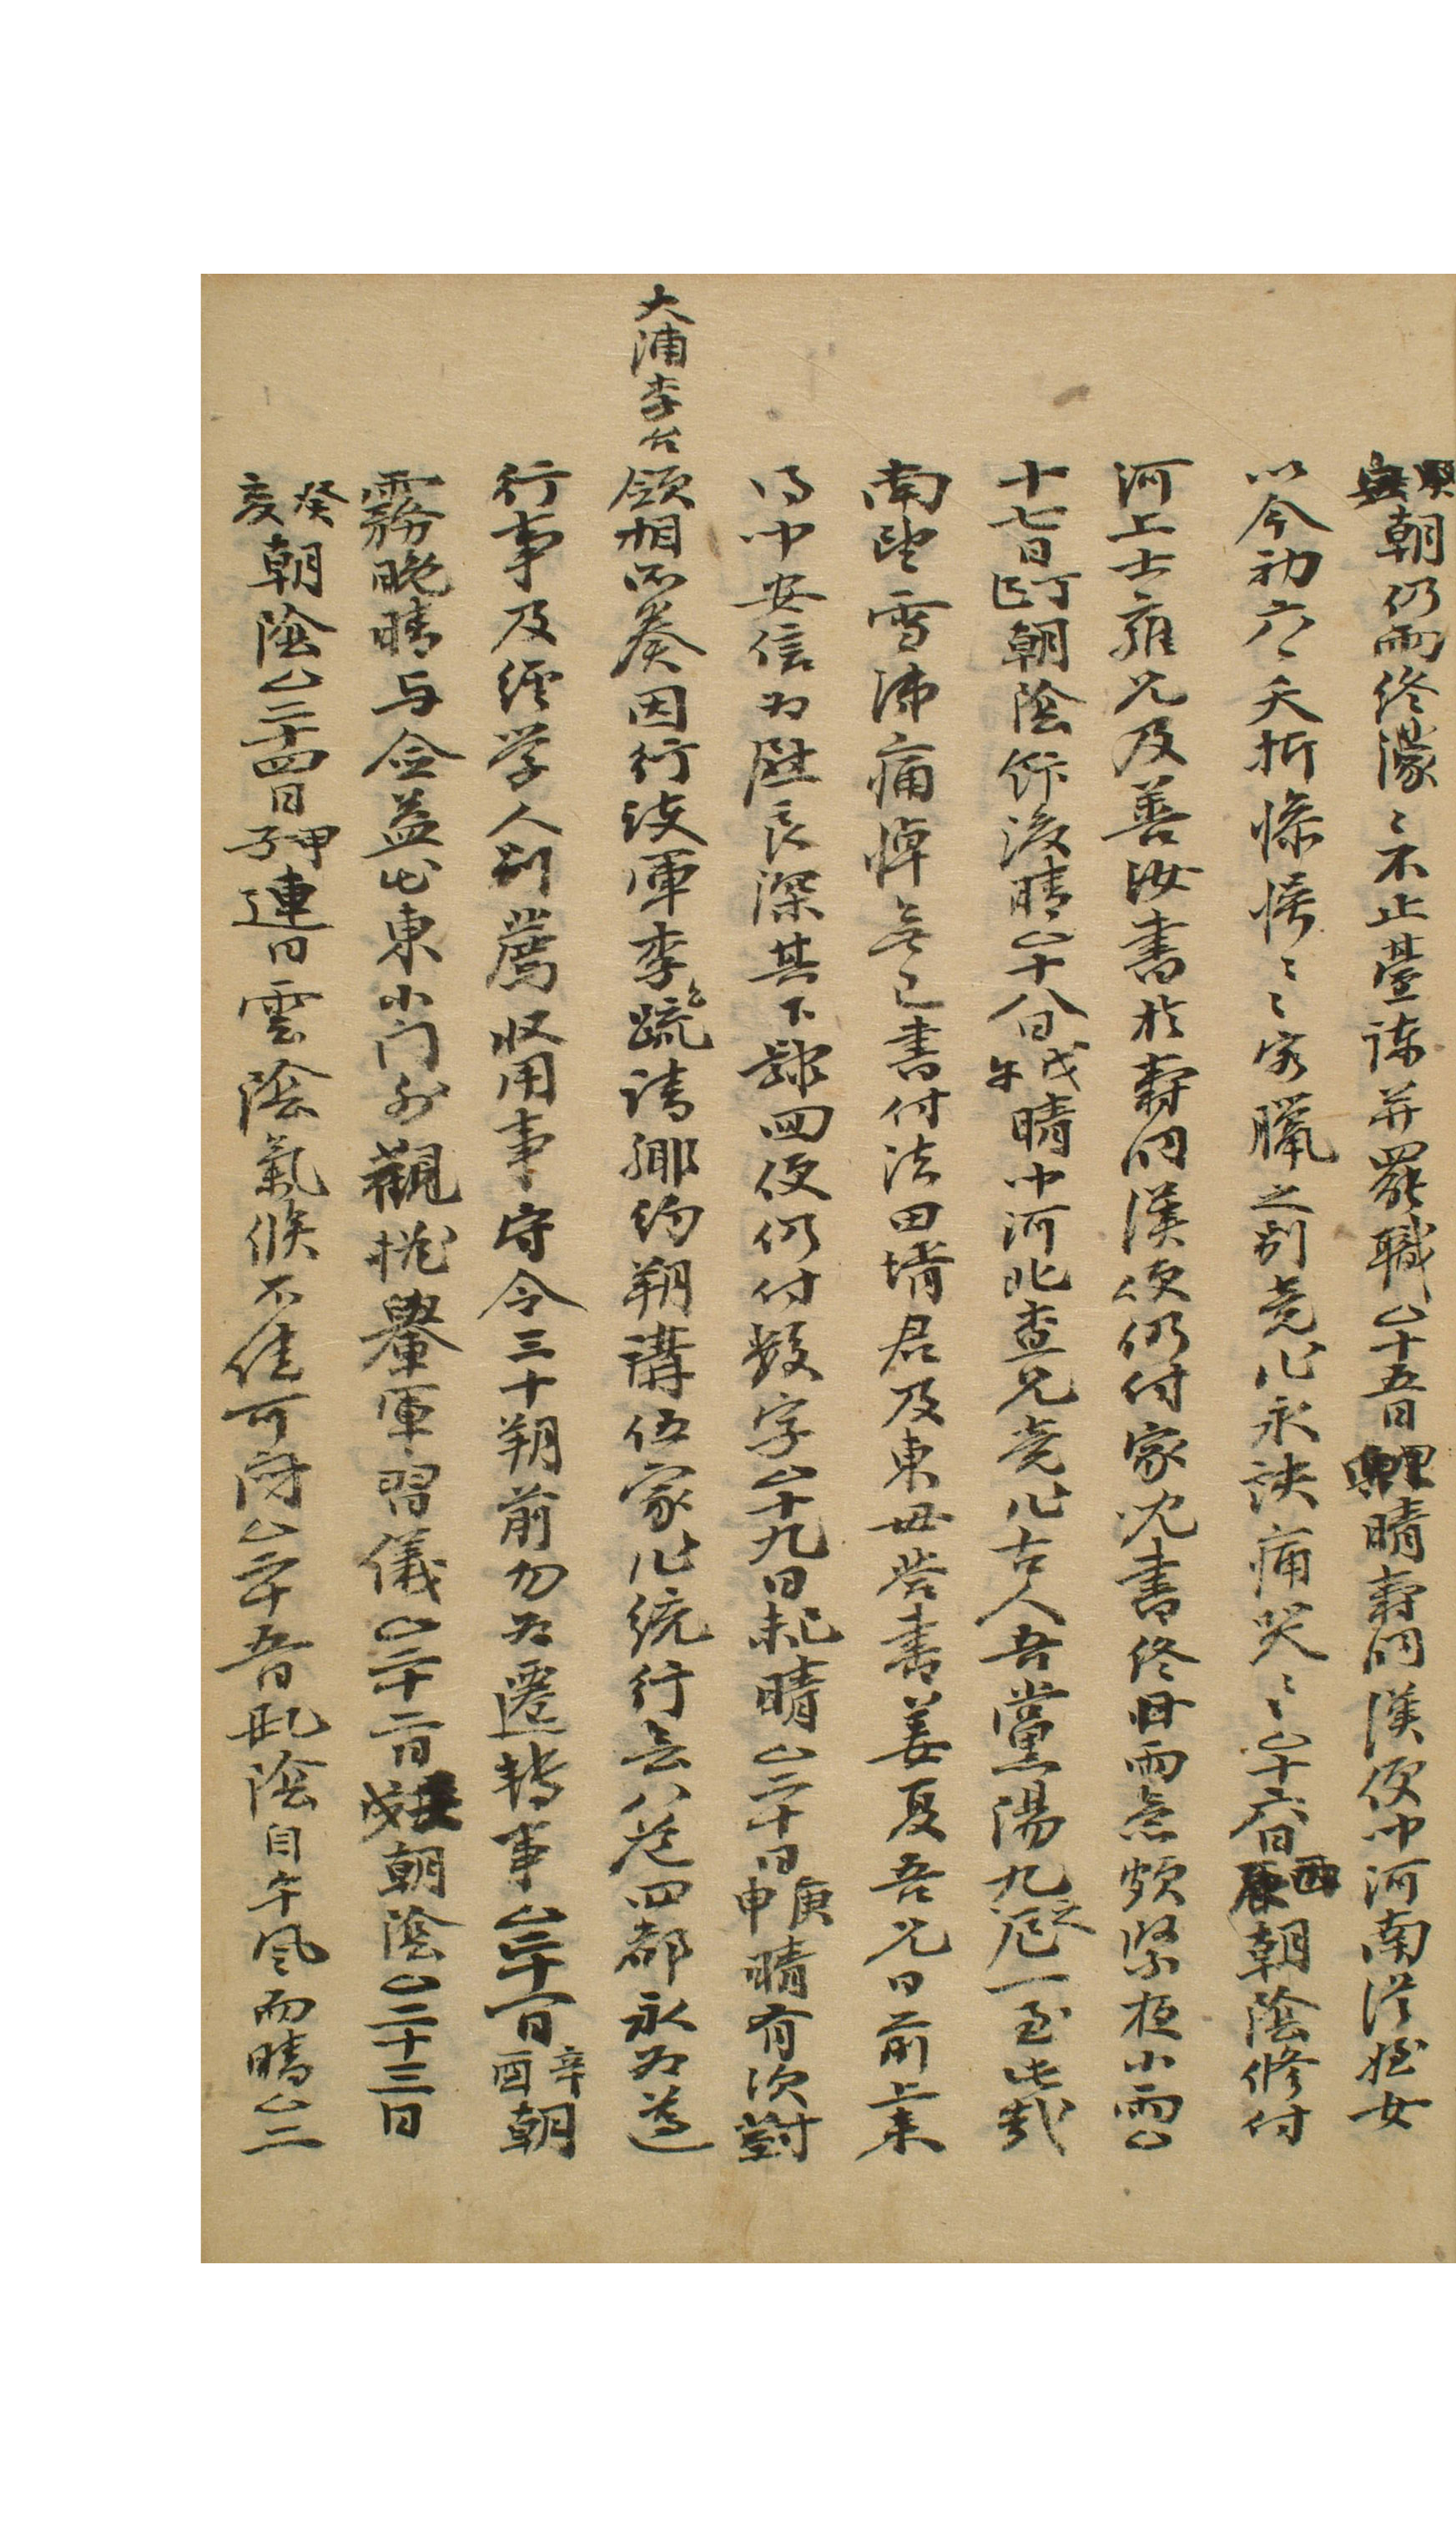 朝仍雨終濛〻不止臺諫并罷職△十五日晴壽同漢便中河南從姪女
以今初六夭折慘愕〻〻客臘之別竟作永訣痛哭〻〻△十六日朝陰修付
河上士雍兄及善汝書於壽同漢便仍付家兄書終日雨意頗緊夜小雨△
十七日丁巳朝陰飯後晴△十八日戊午晴中河北查兄竟作古人吾黨陽九之厄一至此哉
南望雪涕痛悼無已書付法田壻君及東毋告書姜夏吾兄日前上來
得中安信爲慰良深其下隸回便仍付數字△十九日己未晴△二十日庚申晴有次對
大浦李台
領相所奏因行護軍李疏請鄉約朔講伍家作統行會八道四都永爲遵
行事及經學人別薦收用事守令三十朔前勿爲遷轉事△二十一日辛酉朝
霧晩晴与金益 出東小门外觀 擧軍習儀△二十二日戌朝陰△二十三日
癸亥朝陰△二十四日甲子連日雲陰氣候不佳可悶△二十五日乙丑陰自午風而晴△二